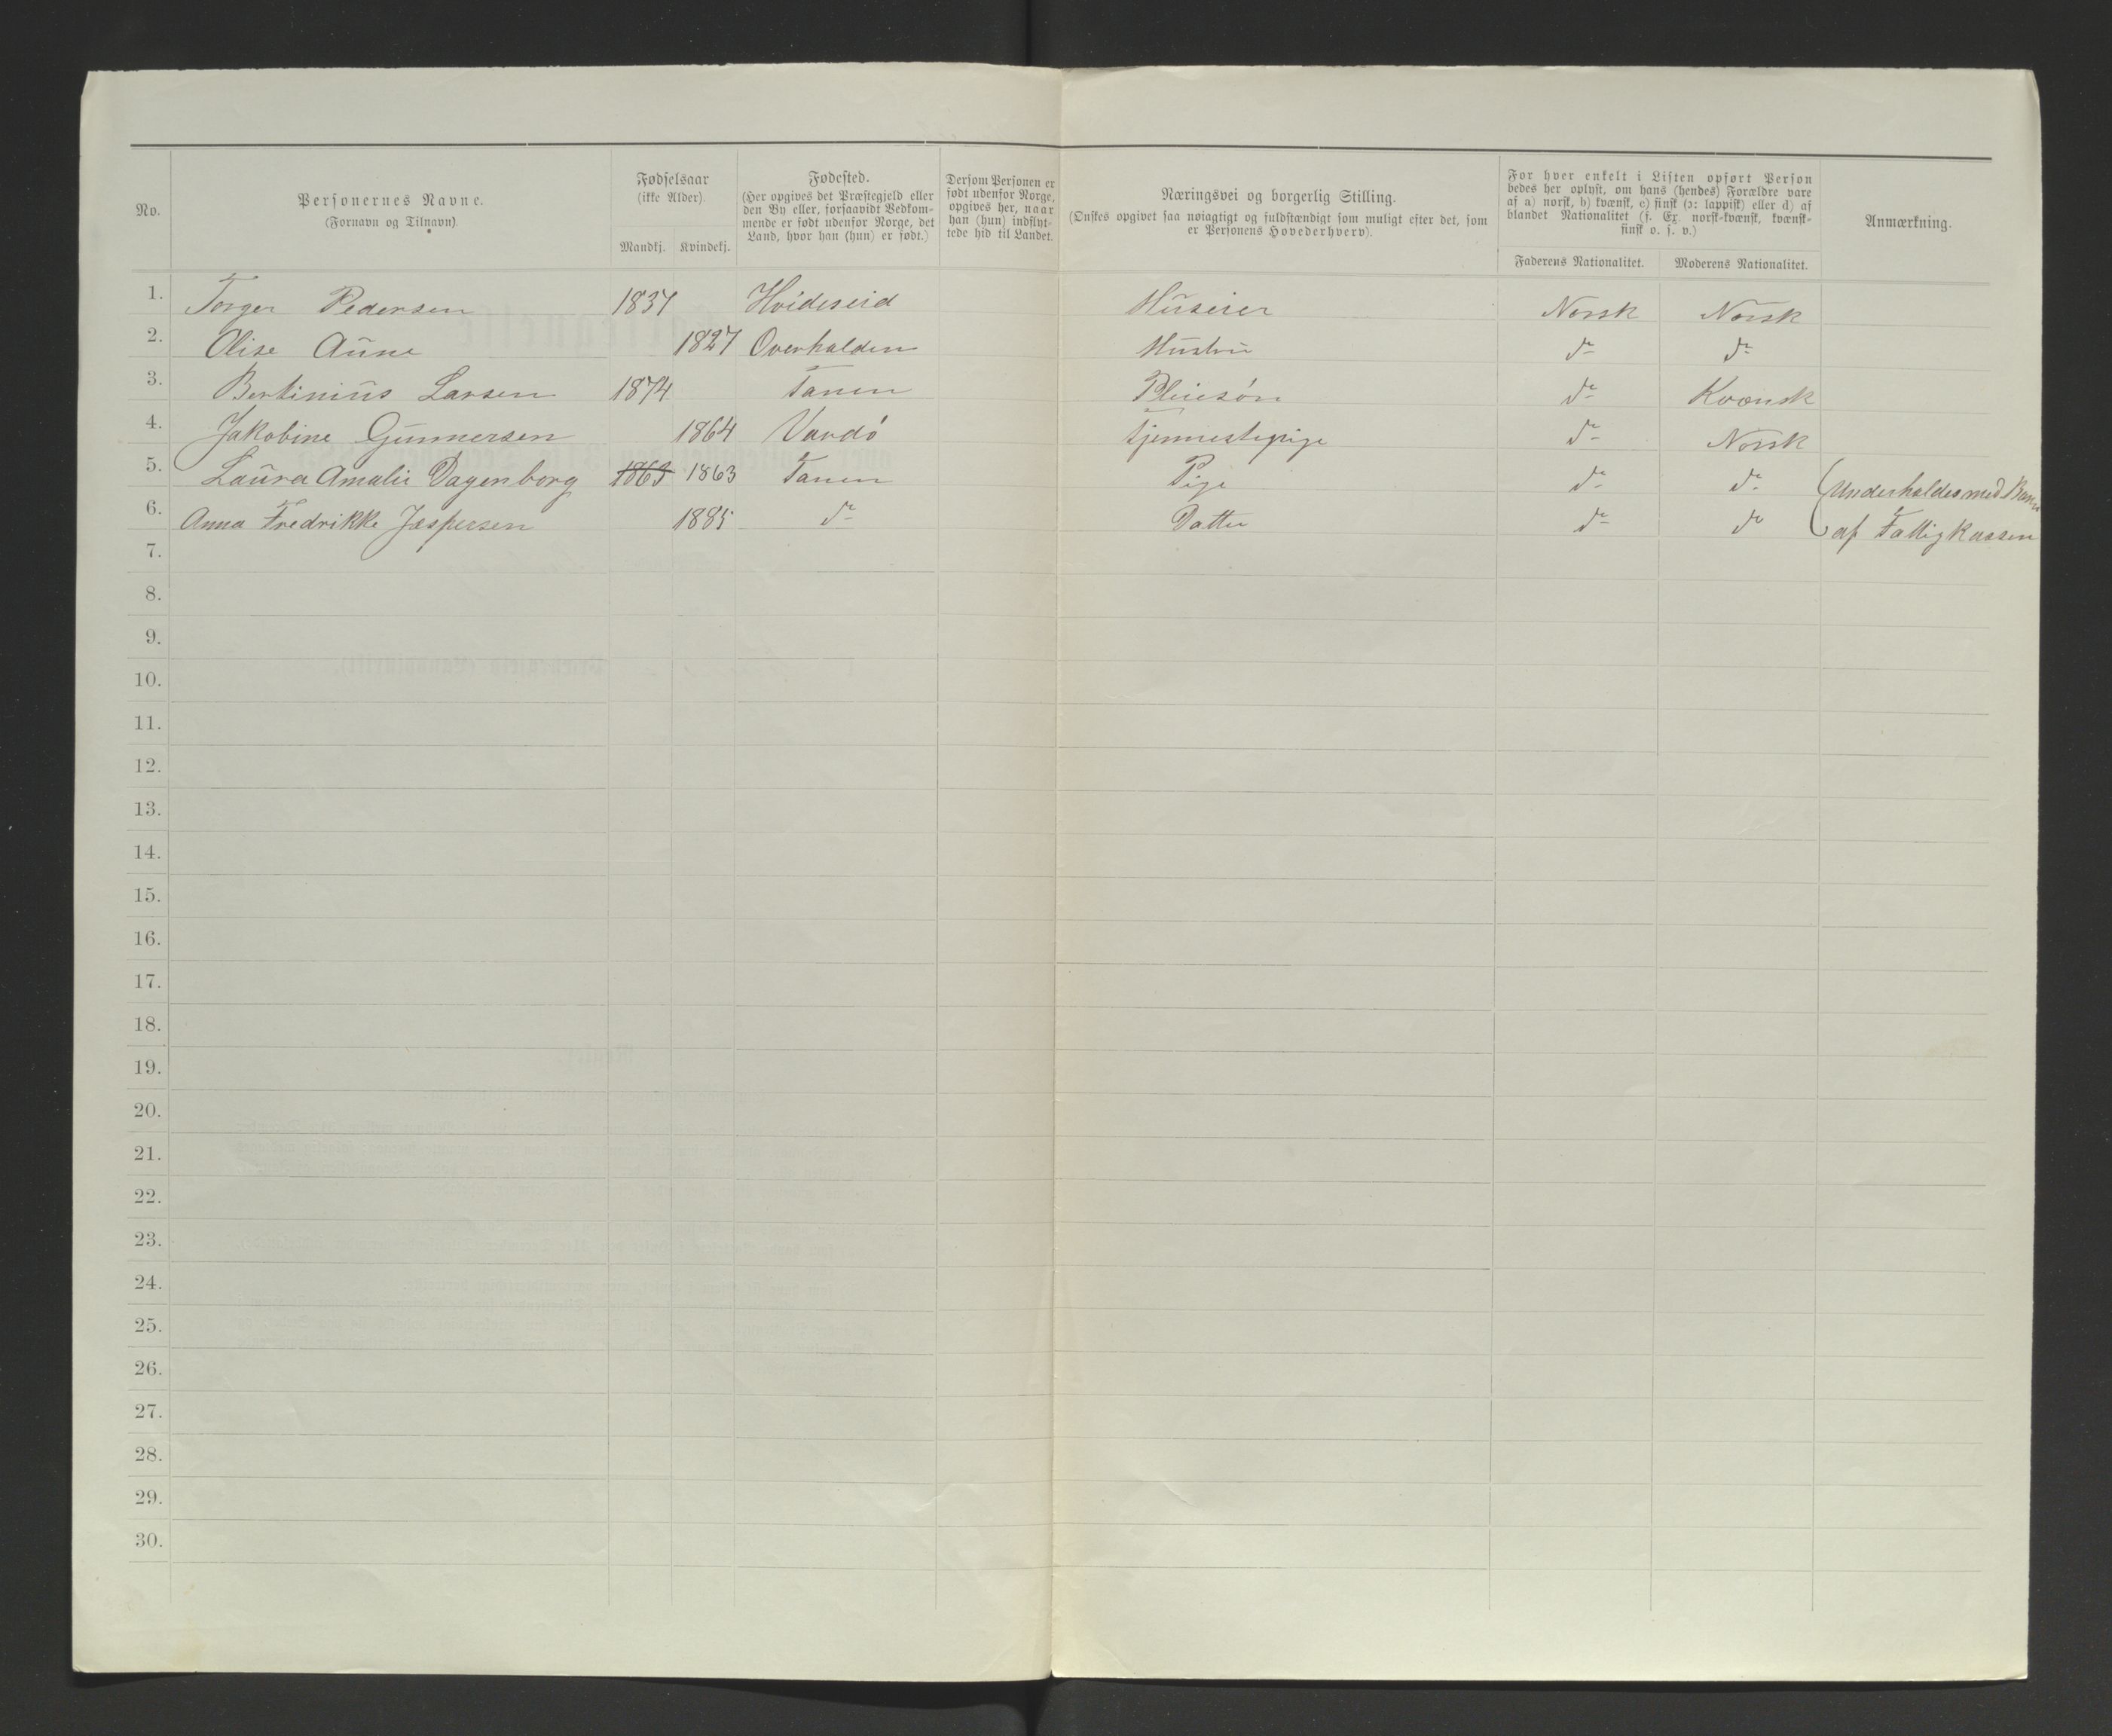 No.
Personernes Navne.
(Fornavn og Tilnavn).
Fødselsaar
(ikke Alder).
Mandkj. Kvindekj.
Fødested.
(Her opgives det Præstegjeld eller
den By eller, forsaavidt Vedkom-
mende er født udenfor Norge, det
Land, hvor han (hun) er født.)
Dersom Personen er
født udenfor Norge,
opgives her, naar
han (hun) indflyt-
tede hid til Landet.
Næringsvei og borgerlig Stilling.
(Ønskes opgivet saa nøiagtigt og fuldstændigt som muligt efter det, som
er Personens Hovederhverv).
For hver enkelt i Listen opført Person
bedes her oplyst, om hans (hendes) Forældre vare
af a) norsk, b) kvænsk, c) finsk (ɔ: lappisk) eller d) af
blandet Nationalitet (f. Ex. norsk-kvænsk, kvænsk-
finsk o. s. v.)
Faderens Nationalitet. Moderens Nationalitet.
Anmærkning.
1. Torger Pedersen 1837 Hvideseid Huseier Norsk Norsk
2. Olise Aune 1827 Overhalden Hustru do do
3. Bertinius Larsen 1874 Tanen Pleiesøn do Kvænsk
4. Jakobine Gunnersen 1864 Vardø tjenestepige do Norsk
5. Laura Amalie Dagenborg 1863 1863 Tanen Pige do do Underholdes med Barn
6. Anna Fredrikke Jæspersen 1885 do Datter do do af Fattigkassen
7.
8.
9.
10.
11.
12.
13.
14.
15.
16.
17.
18.
19.
20.
21.
22.
23.
24.
25.
26.
27.
28.
29.
30.